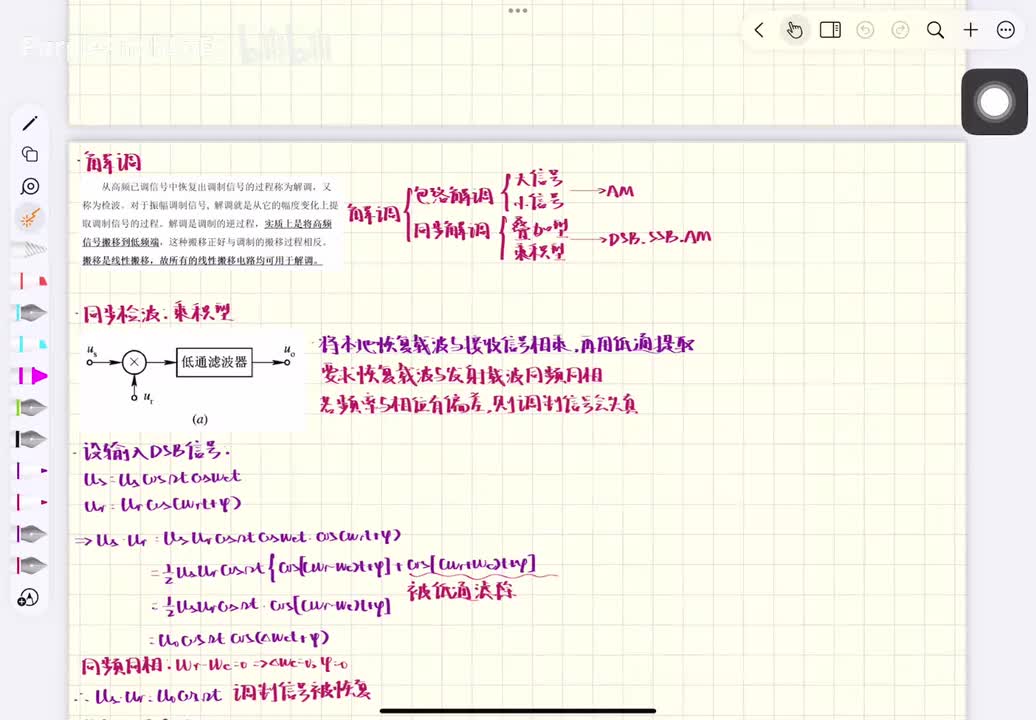 ·解调
从高频已调信号中恢复出调制信号的过程称为解调，又
称为检波。对于振幅调制信号，解调就是从它的幅度变化上提
取调制信号的过程。解调是调制的逆过程，实质上是将高频
信号搬移到低频端，这种搬移正好与调制的搬移过程相反。
搬移是线性搬移，故所有的线性搬移电路均可用于解调。
解调
包络解调
大信号
小信号
→AM
同步解调
叠加型
乘积型
→DSB.SSB.AM
·同步检波：乘积型
us
×
低通滤波器
uo
ur
(a)
将本地恢复载波与接收信号相乘，再用低通提取
要求恢复载波与发射载波同频同相
若频率与相位有偏差，则调制信号会失真
·设输入DSB信号.
us=UscosΩtcosωct
ur=Urcos(ωrt+φ)
⇒us·ur=UsUrcosΩtcosωct·cos(ωrt+φ)
=½UsUrcosΩt{cos[(ωr-ωc)t+φ]+cos[(ωr+ωc)t+φ]
被低通滤除
=½UsUrcosΩt·cos[(ωr-ωc)t+φ]
=UocosΩtcos(Δωct+φ)
同频同相.ωr-ωc=0⇒Δωc=0,φ=0
∴us·ur=UocosΩt 调制信号被恢复